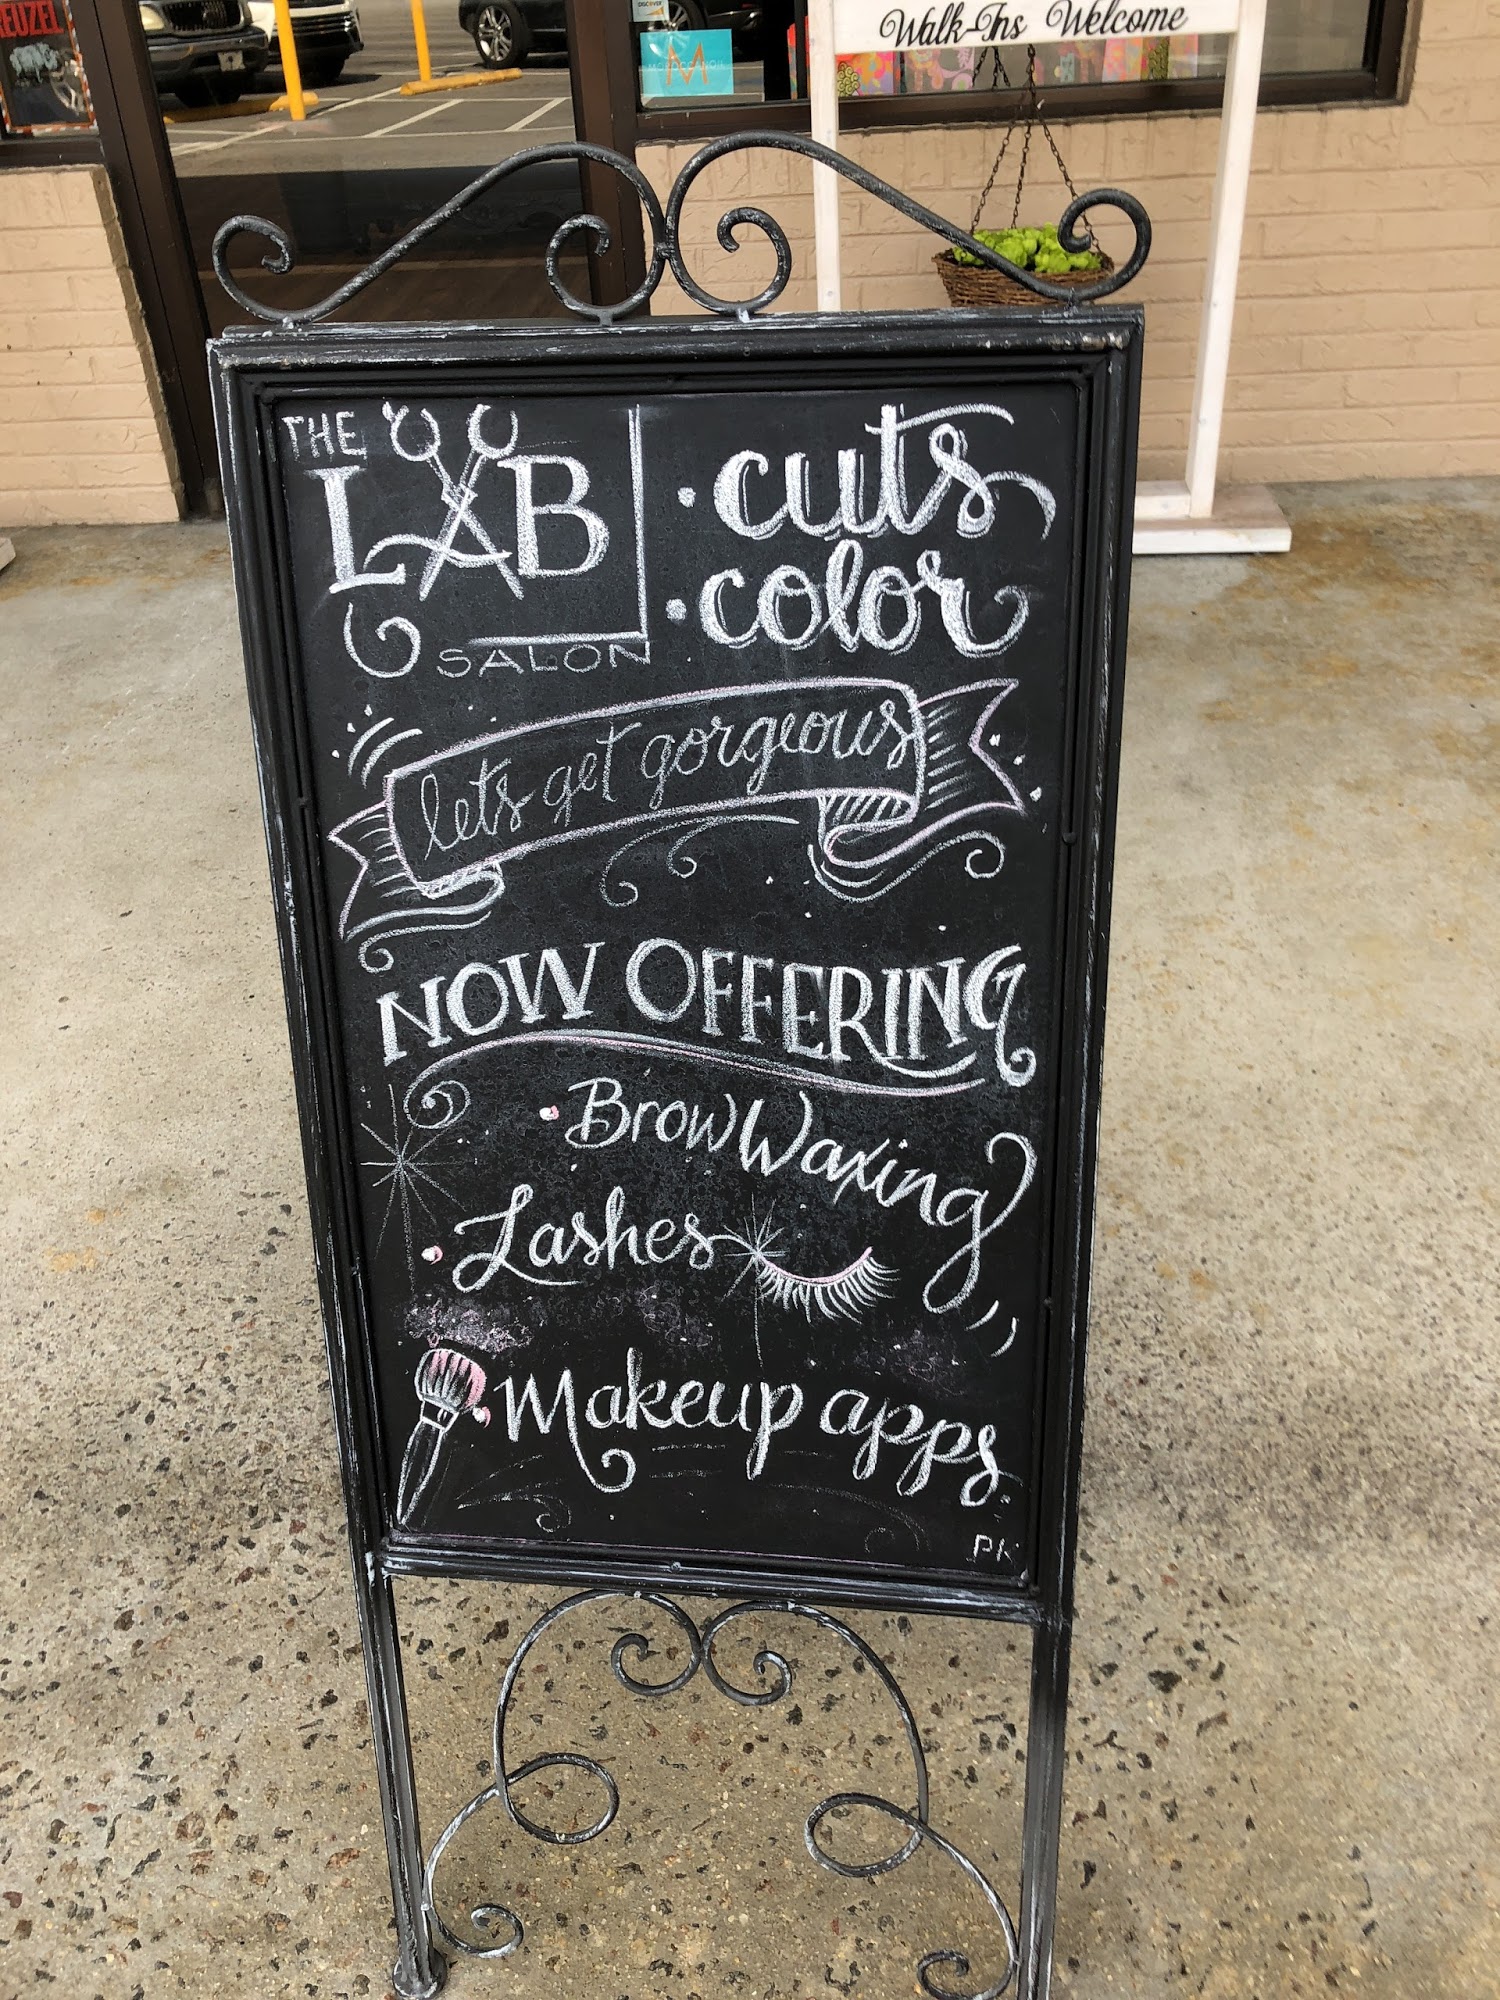 REUZEL
DISCOVER
M
MOROCCANOIL
Walk-Ins Welcome
THE
LAB
SALON
• cuts
• color
lets get gorgeous
NOW OFFERING
• Brow Waxing
• Lashes
• Makeup apps.
PK